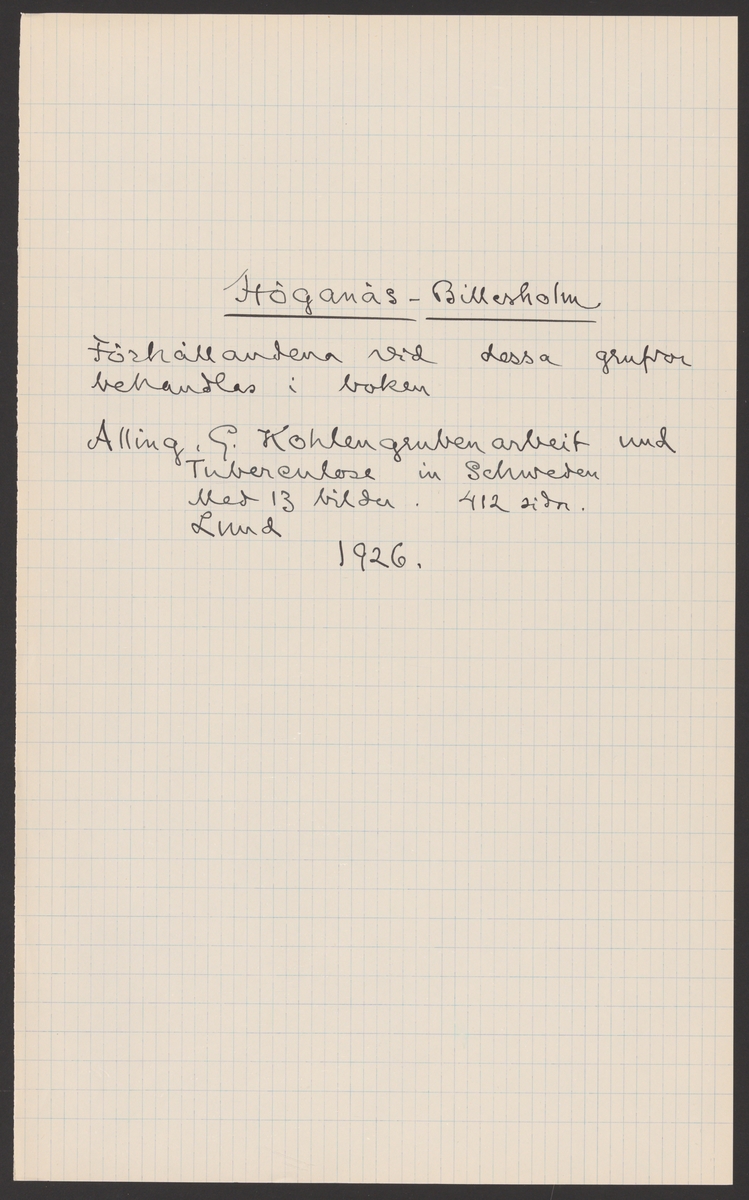 Höganäs - Billesholm
Förhållandena vid dessa grufvor
behandlas i boken
Alling, G. Kohlengrubenarbeit und
Tuberculose in Schweden
Med 13 bilder. 412 sidor.
Lund
1926.